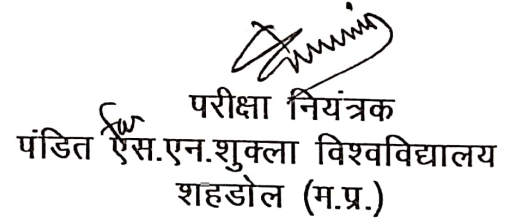 परीक्षा नियंत्रक
for
पंडित एस.एन.शुक्ला विश्वविद्यालय
शहडोल (म.प्र.)